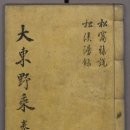 大東野乘
松窩雜說
松溪漫錄